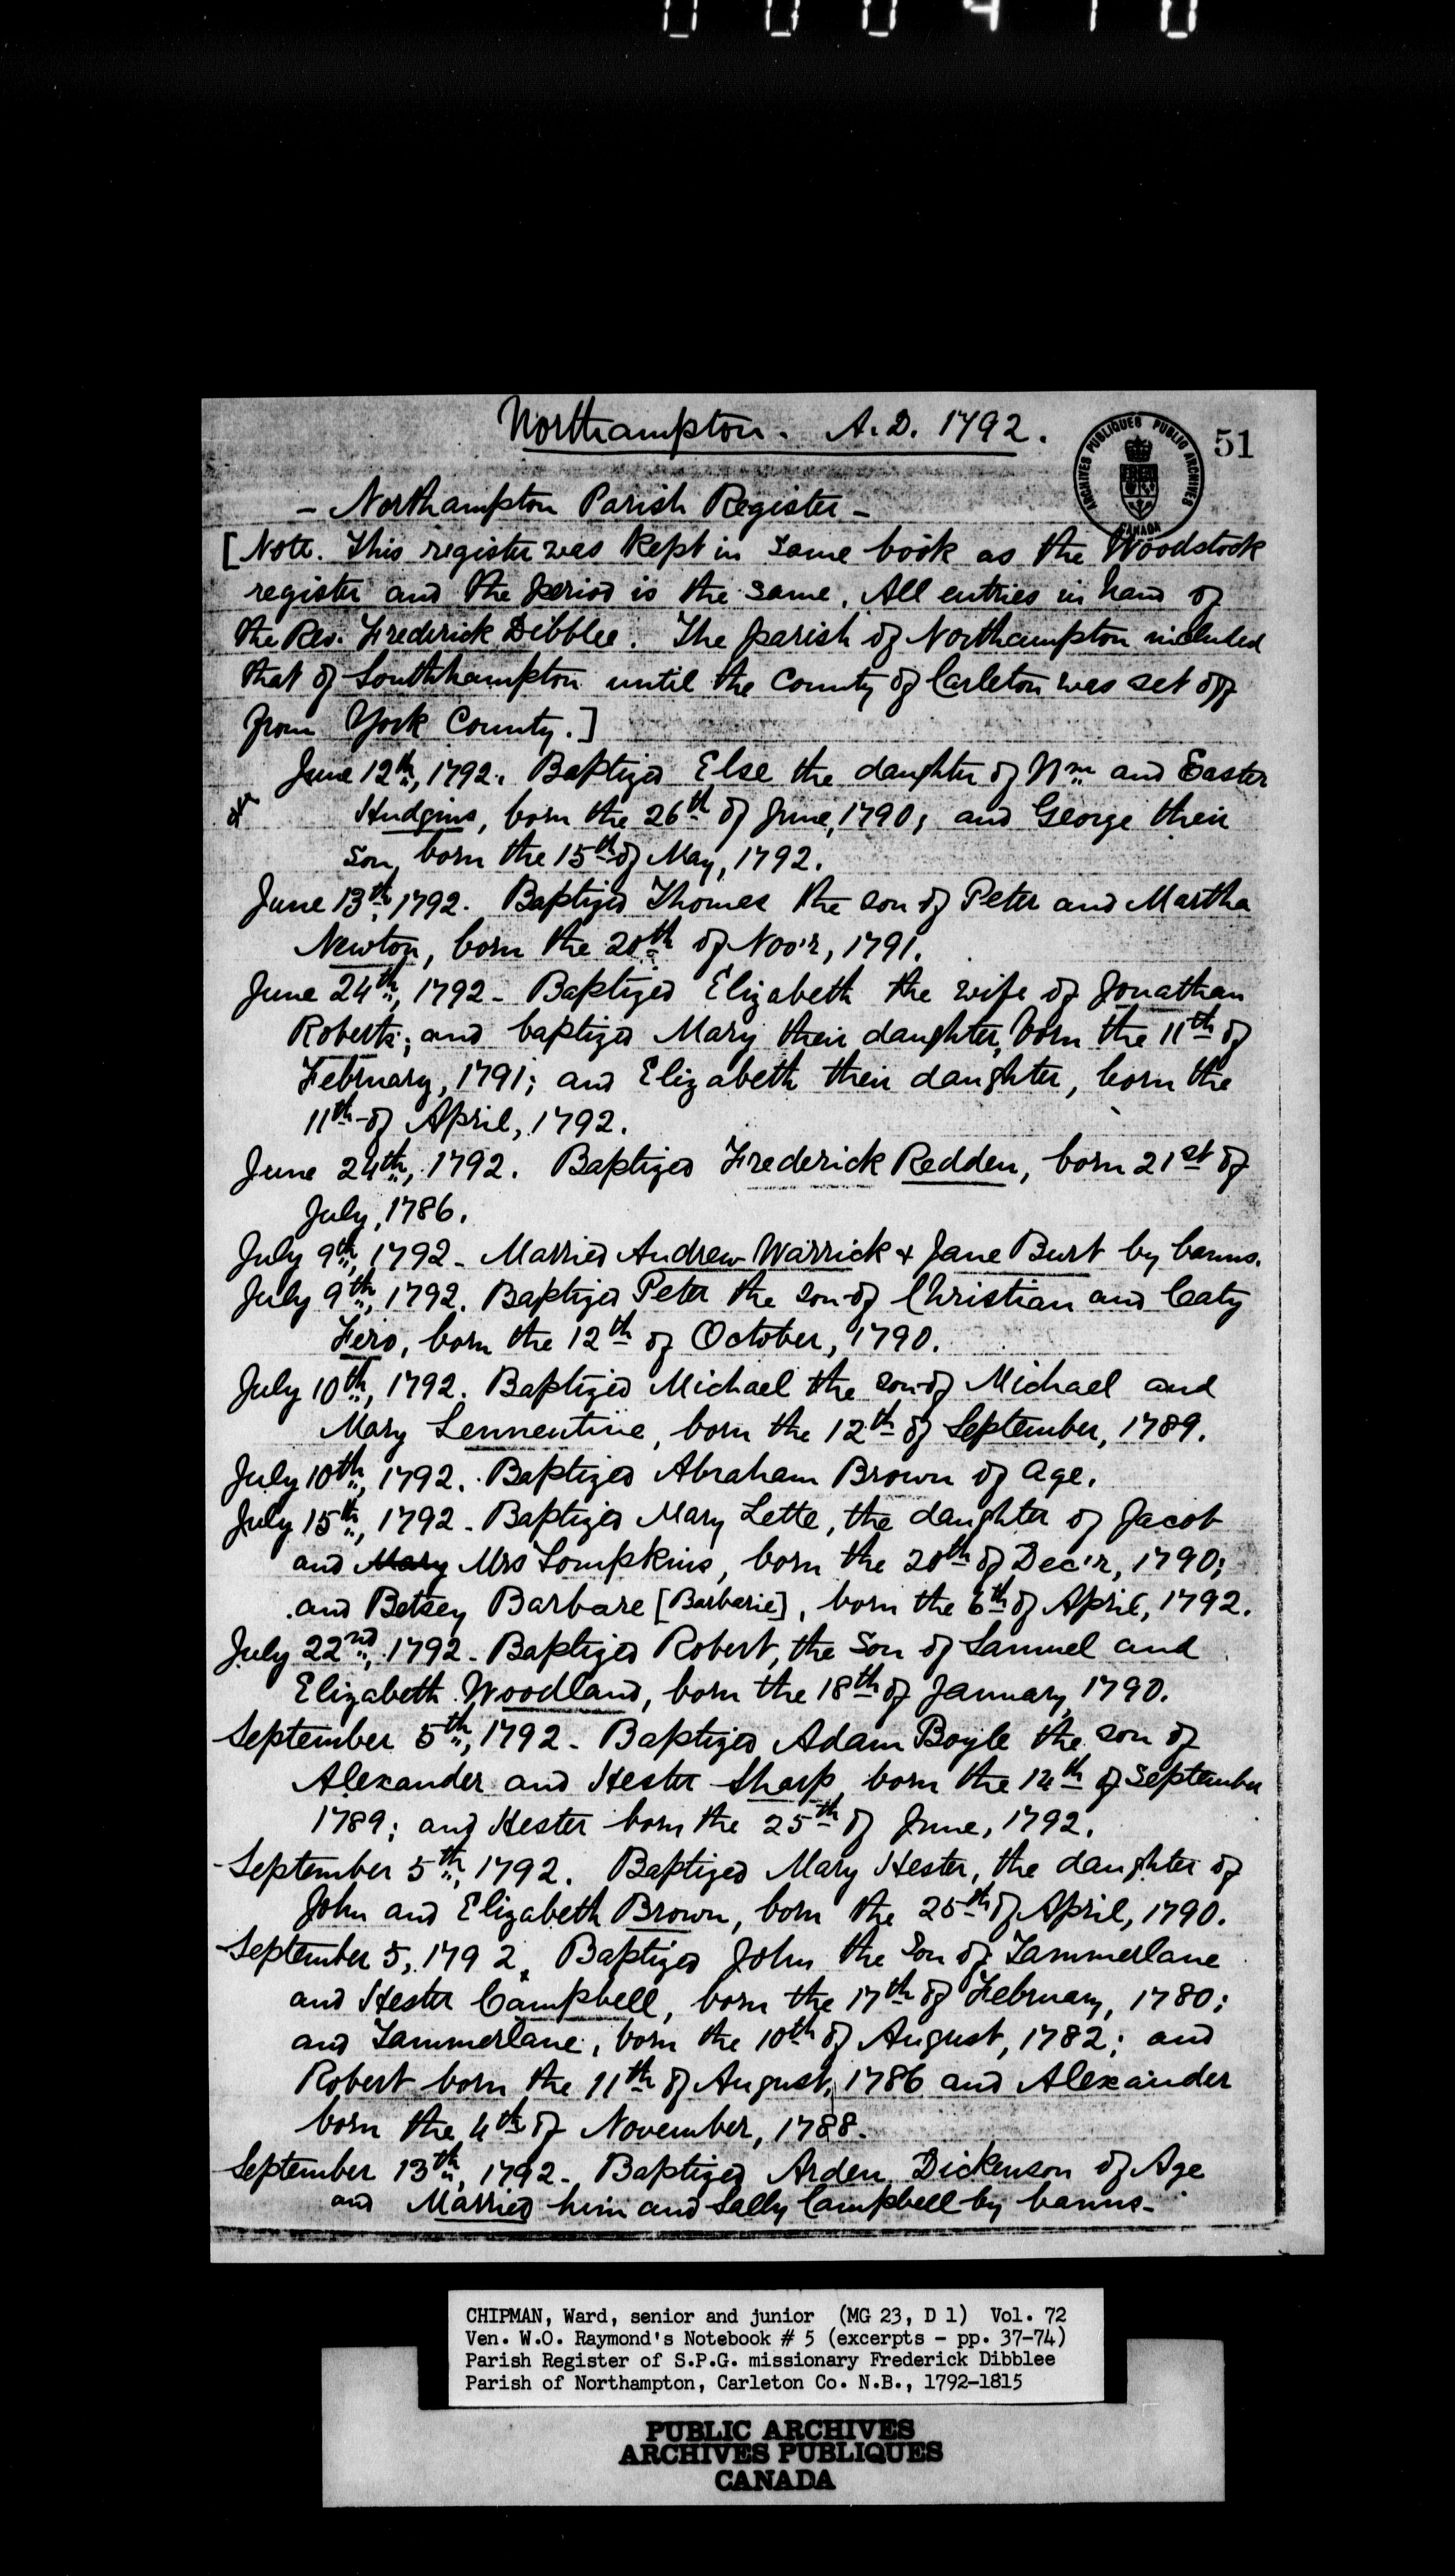 000410
Northampton. A.D. 1792.
ARCHIVES PUBLIQUES PUBLIC ARCHIVES
CANADA
51
- Northampton Parish Register -
[Note. This register was kept in same book as the Woodstock
register and the period is the same. All entries in hand of
the Rev. Frederick Dibblee. The parish of Northampton included
that of Southhampton until the County of Carleton was set off
from York County.]
June 12th, 1792. Baptized Else the daughter of Wm and Easter
Hudgins, born the 26th of June, 1790; and George their
son born the 15th of May, 1792.
June 13th, 1792. Baptized Thomas the son of Peter and Martha
Newton, born the 20th of Nov'r, 1791.
June 24th, 1792 - Baptized Elizabeth the wife of Jonathan
Roberts; and baptized Mary their daughter, born the 11th of
February, 1791; and Elizabeth their daughter, born the
11th of April, 1792.
June 24th, 1792. Baptized Frederick Redden, born 21st of
July, 1786.
July 9th, 1792 - Married Andrew Warrick & Jane Burt by banns.
July 9th, 1792. Baptized Peter the son of Christian and Caty
Fero, born the 12th of October, 1790.
July 10th, 1792. Baptized Michael the son of Michael and
Mary Lennentine, born the 12th of September, 1789.
July 10th, 1792. Baptized Abraham Brown of age.
July 15th, 1792 - Baptized Mary Lette, the daughter of Jacob
and Mary Mrs Tompkins, born the 20th of Dec'r, 1790;
and Betsey Barbare [Barbarie], born the 6th of April, 1792.
July 22nd, 1792 - Baptized Robert, the Son of Samuel and
Elizabeth Woodland, born the 18th of January, 1790.
September 5th, 1792 - Baptized Adam Boyle the son of
Alexander and Hester Sharp, born the 14th of September
1789; and Hester born the 25th of June, 1792.
September 5th, 1792. Baptized Mary Hester, the daughter of
John and Elizabeth Brown, born the 25th of April, 1790.
September 5, 1792. Baptized John the Son of Tammerlane
and Hester Campbell, born the 17th of February, 1780;
and Tammerlane, born the 10th of August, 1782; and
Robert born the 11th of August, 1786 and Alexander
born the 4th of November, 1788.
September 13th, 1792 - Baptized Arden Dickenson of Age
and Married him and Sally Campbell by banns -
CHIPMAN, Ward, senior and junior (MG 23, D 1) Vol. 72
Ven. W.O. Raymond's Notebook # 5 (excerpts - pp. 37-74)
Parish Register of S.P.G. missionary Frederick Dibblee
Parish of Northampton, Carleton Co. N.B., 1792-1815
PUBLIC ARCHIVES
ARCHIVES PUBLIQUES
CANADA